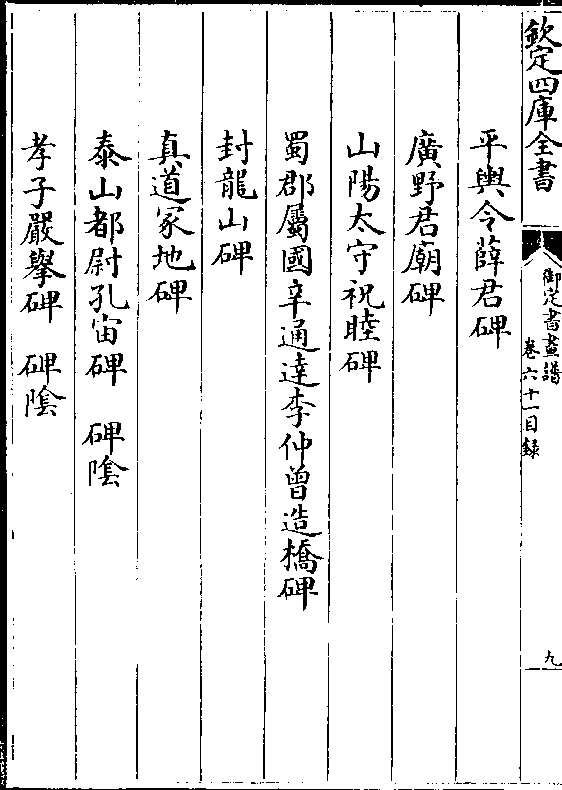 欽定四庫全書
御定書畫譜
卷六十一目録
九
平輿令薛君碑
廣野君廟碑
山陽太守祝睦碑
蜀郡屬國辛通達李仲曾造橋碑
封龍山碑
真道冢地碑
泰山都尉孔宙碑 碑隂
孝子嚴舉碑 碑隂